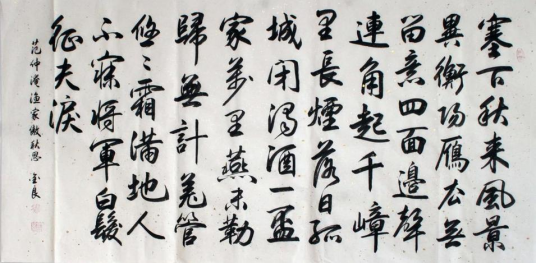 塞百秋来風景
異衡陽鴈去無
留意四面邊聲
連角起千嶂
里長煙落日孤
城閉濁酒一盃
家萬里燕未勒
歸無計羌管
悠々霜滿地人
不寐将軍白髮
征夫淚
范仲淹漁家傲秋思